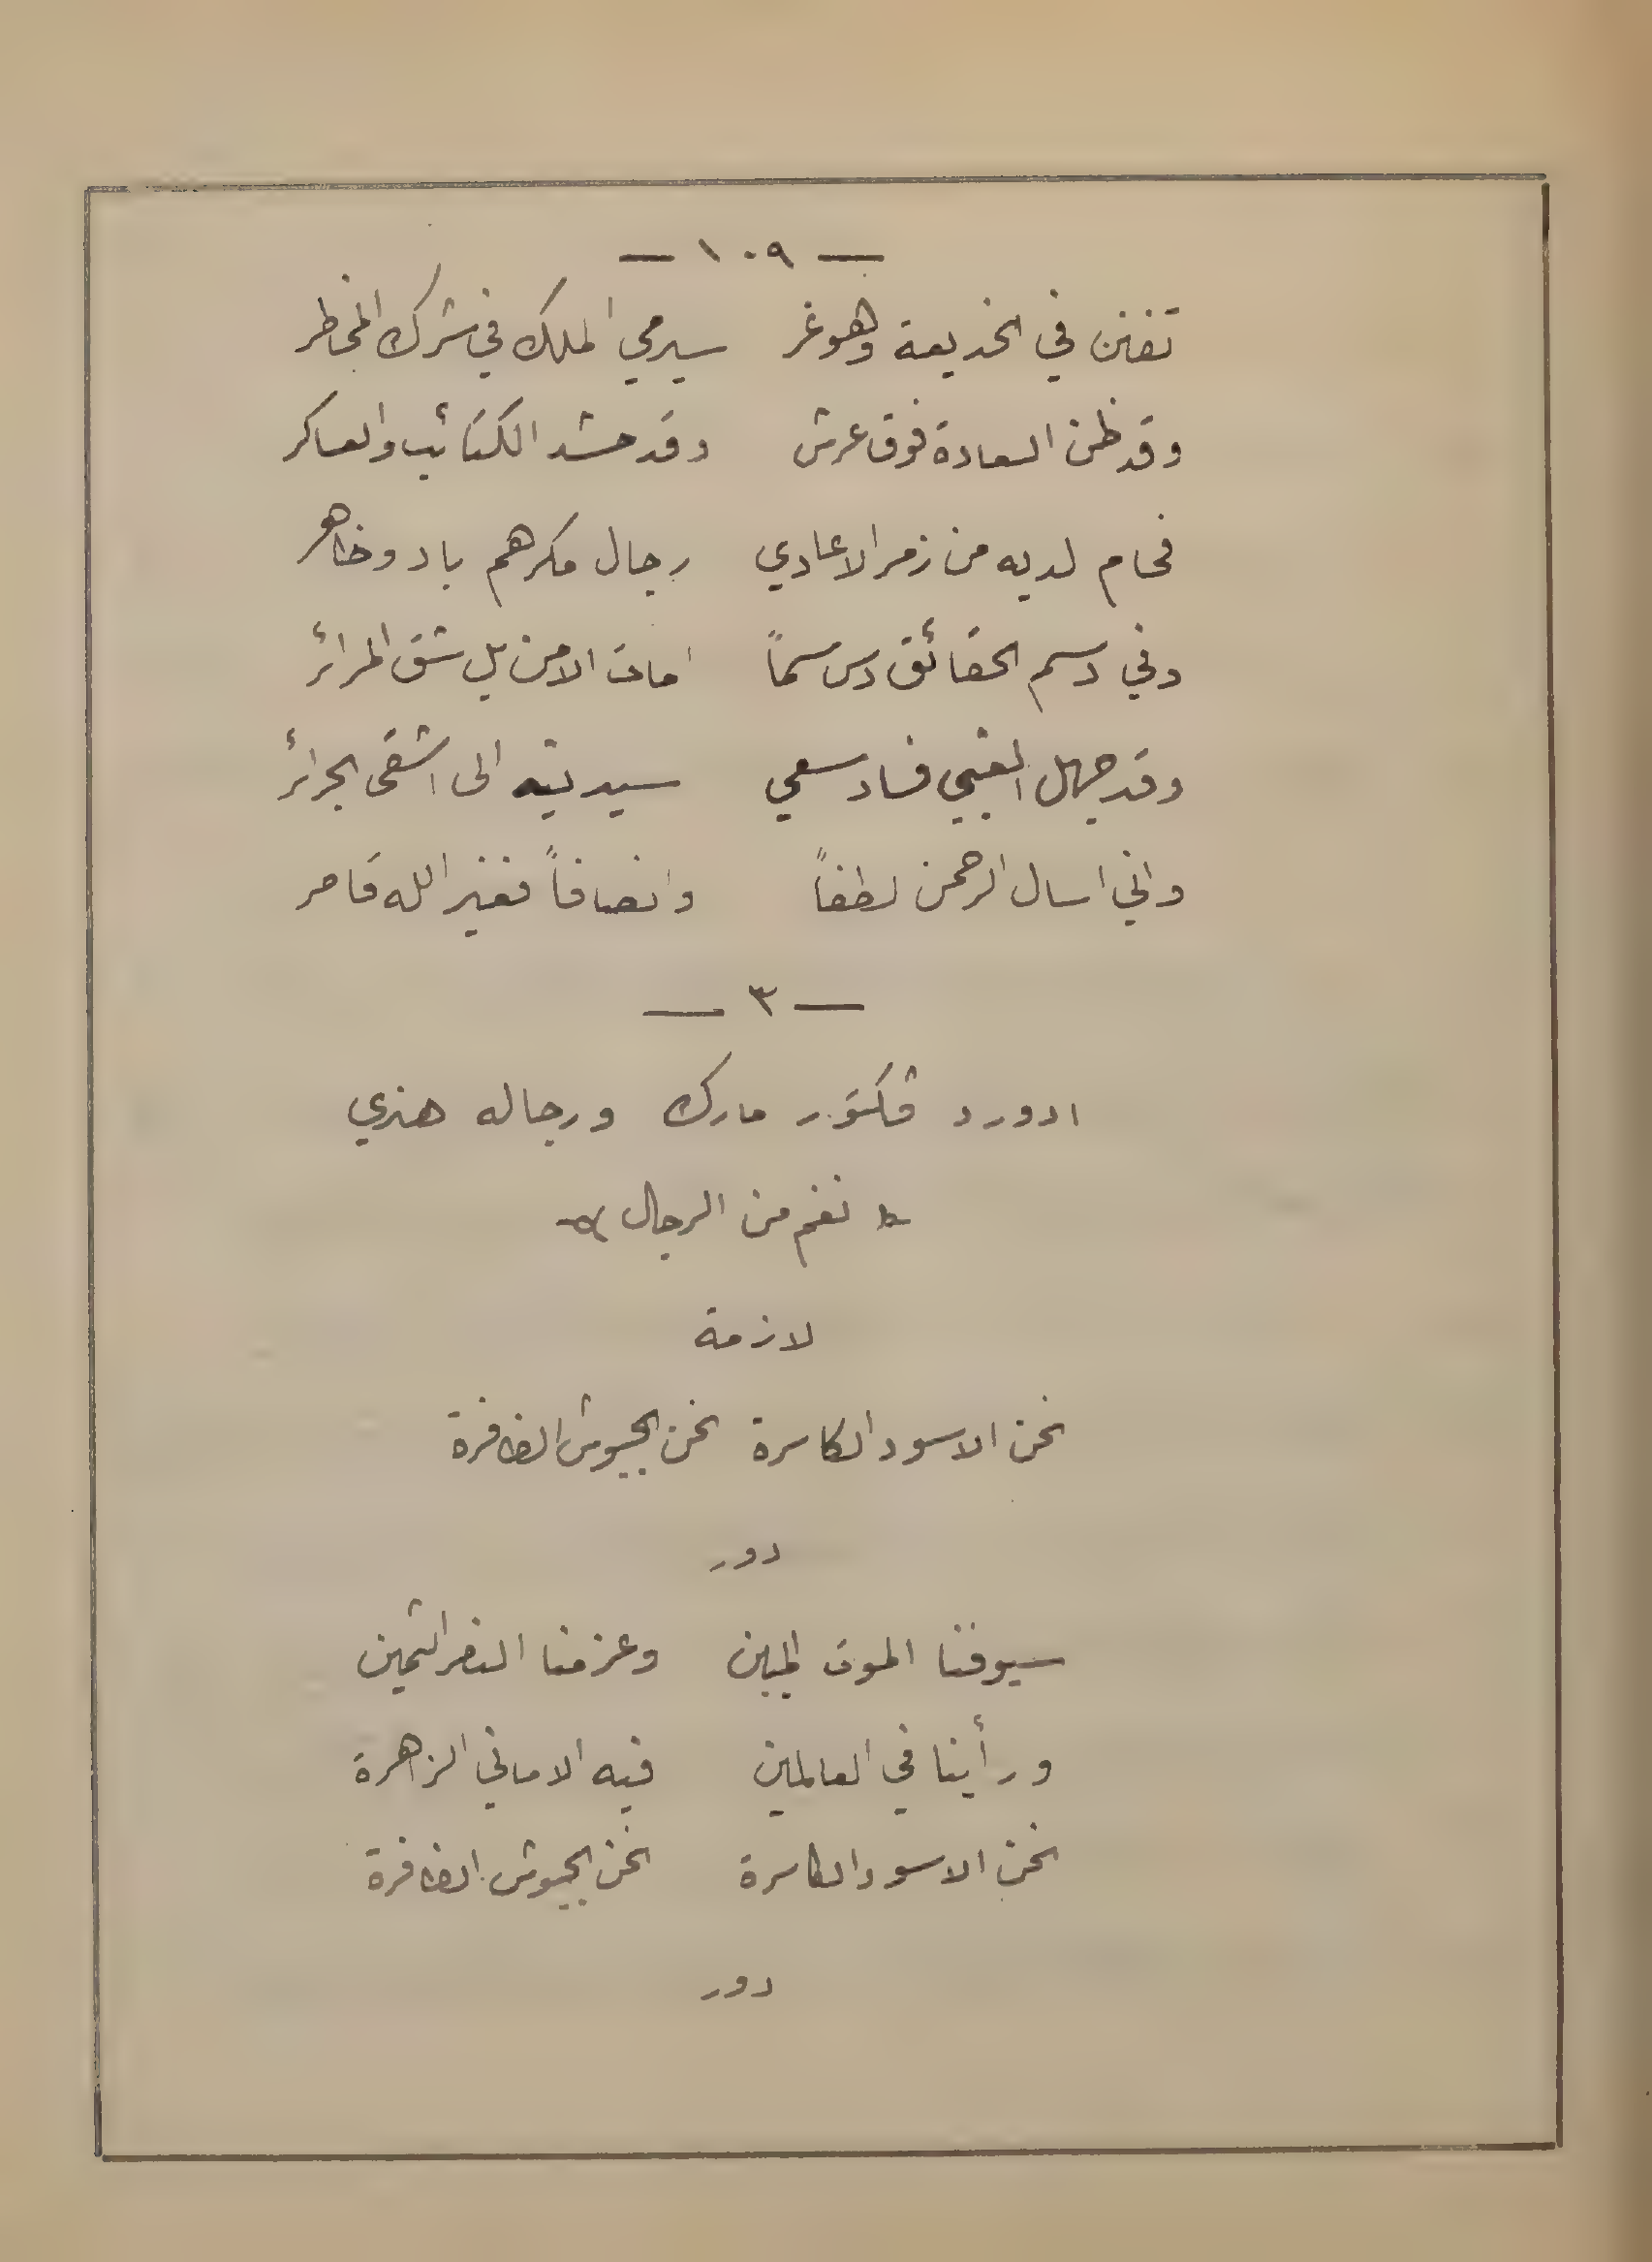 — ١٠٩ —
تفنن في الخديعة وهو غر سيرمي الملك في شرك المخاطر
وقد ظن السعادة فوق عرش وقد حشد الكتائب والعساكر
فحام لديه من زمر الاعادي رجال مكرهم باد وظاهر
وفي دسم الحقائق دس سماً امات الامن بل شق المرائر
وقد جهل الغبي فساد سعي سيدنيه الى اشقى الجرائر
واني اسال الرحمن لطفاً وانصافاً فغير الله قاصر
— ٣ —
ادورد فكتور مارك ورجاله هنري
نغم من الرجال
لازمة
نحن الاسود الكاسرة نحن الجيوش الظافرة
دور
سيوفنا الموت المبين وعزمنا النصر الثمين
ورأينا في العالمين فيه الاماني الزاهرة
نحن الاسود الكاسرة نحن الجيوش الظافرة
دور